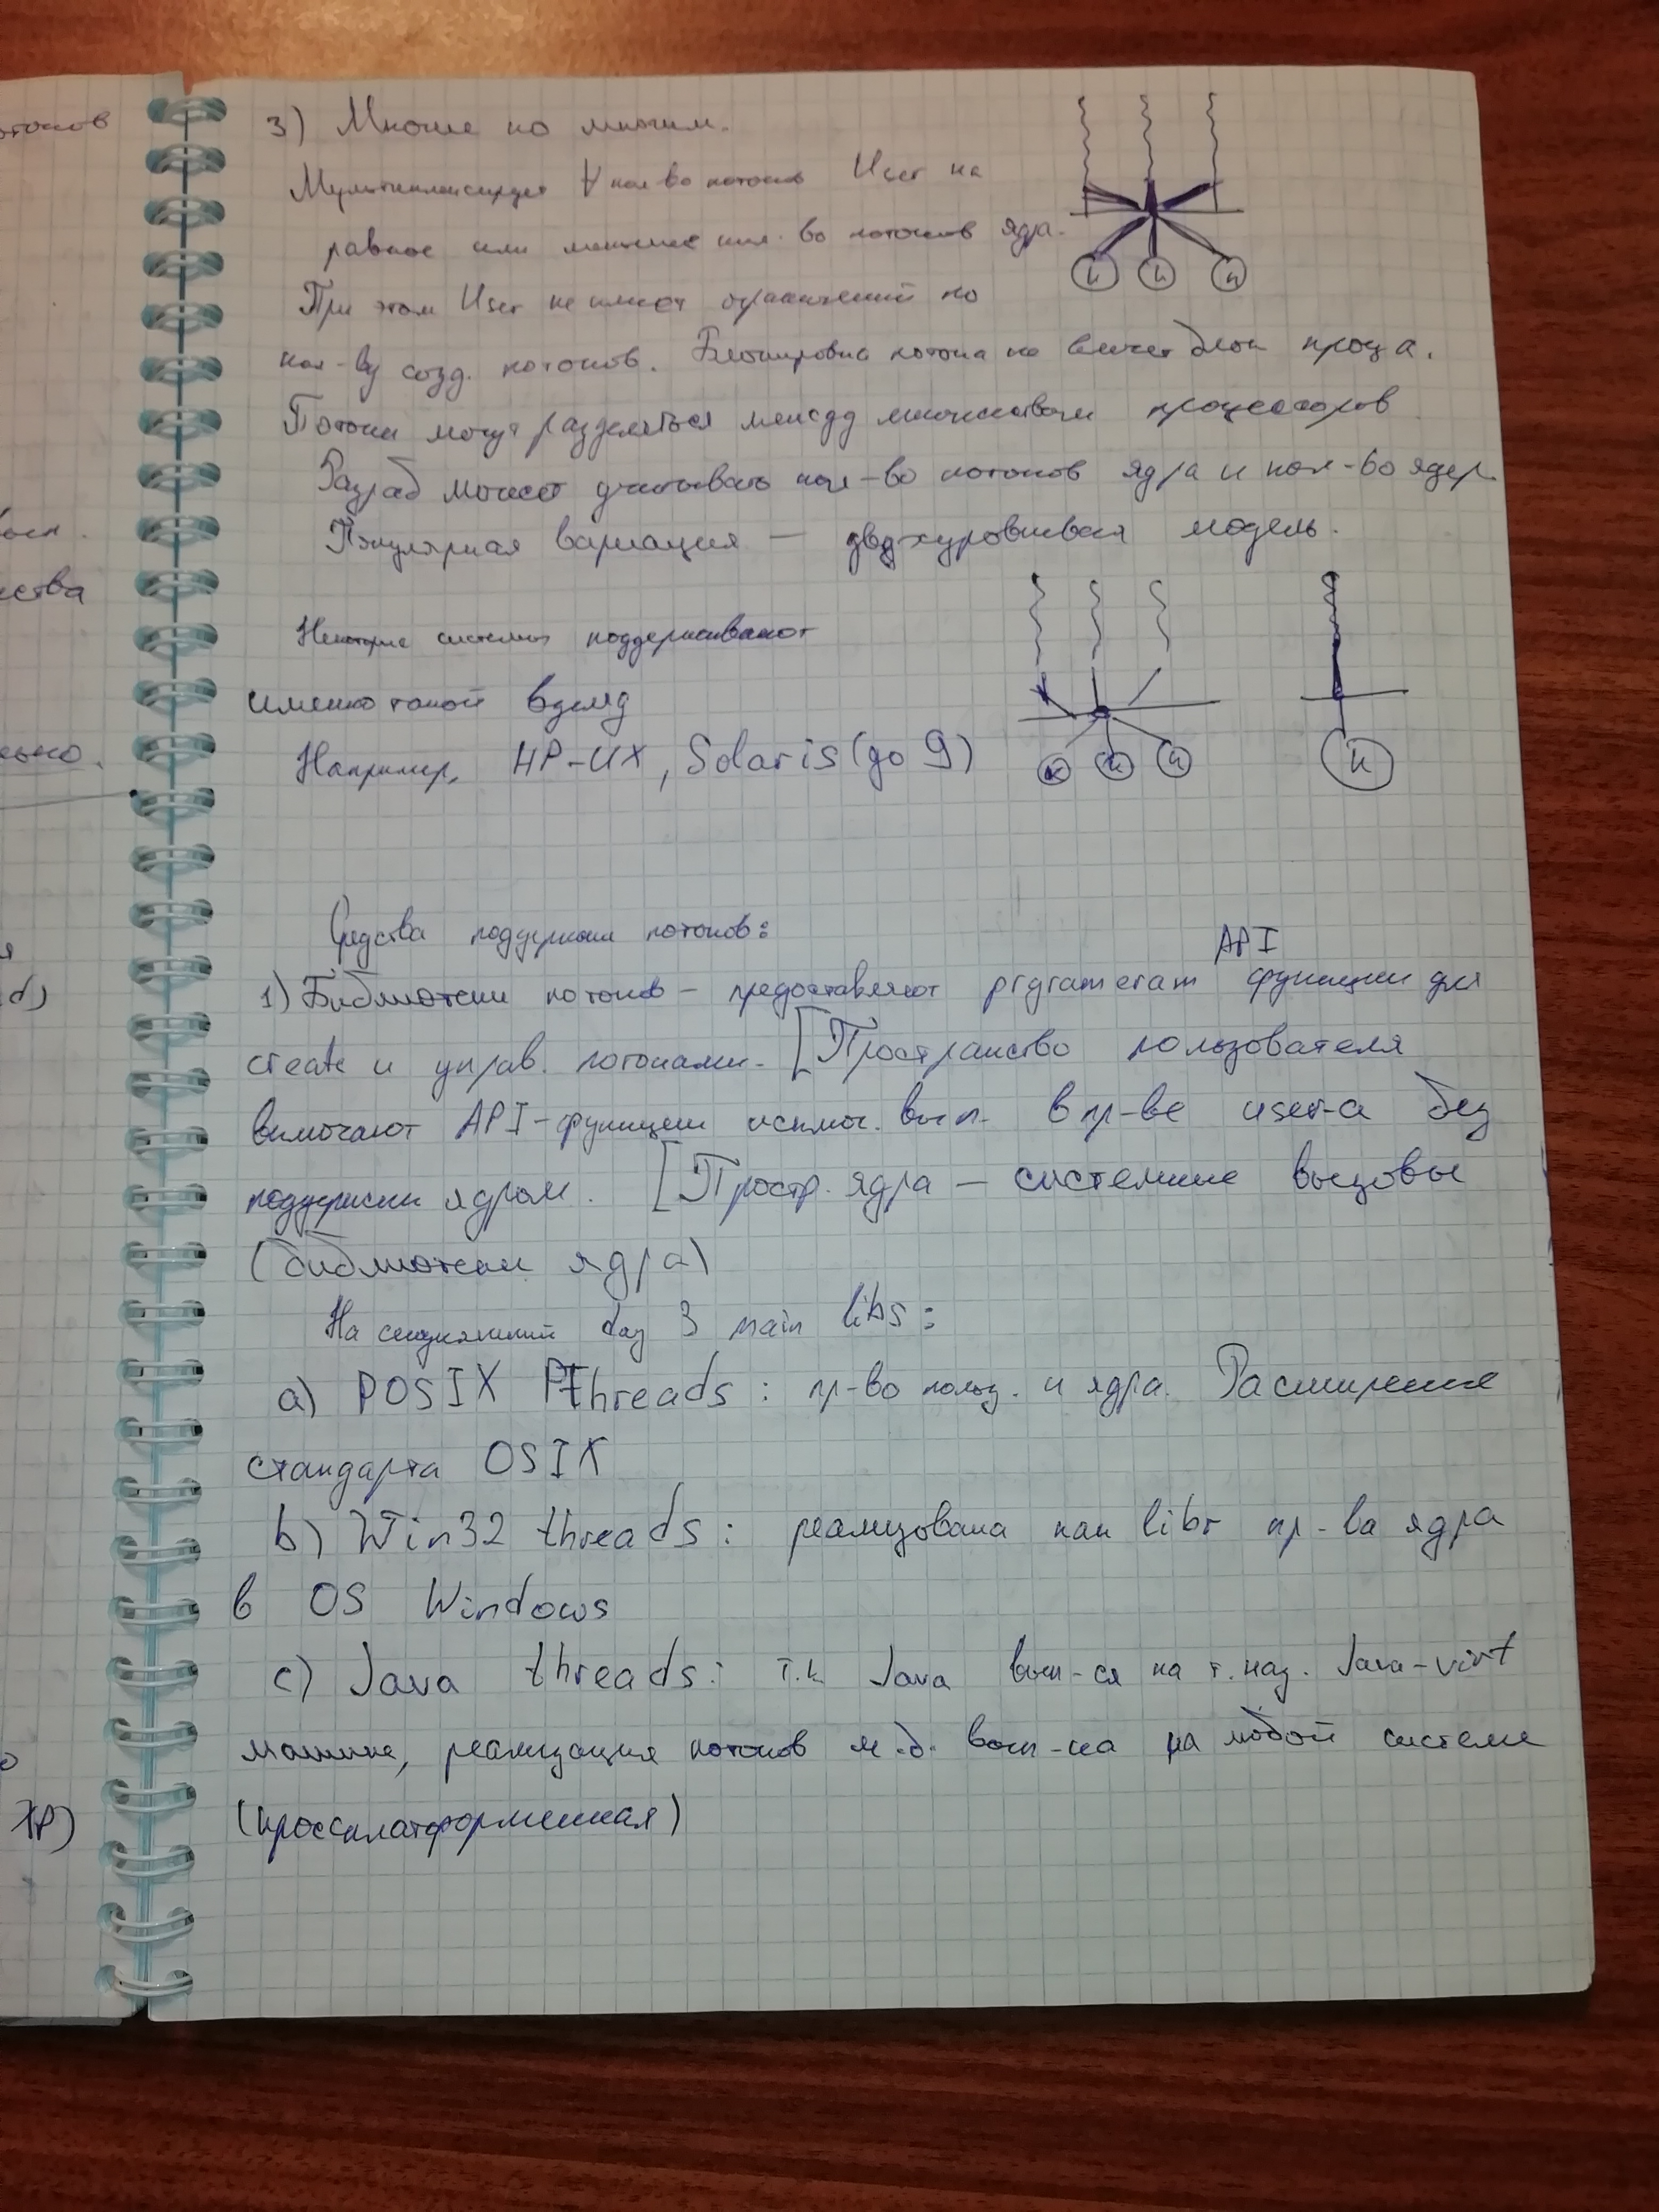 3) Многие ко многим.
Мультиплексирует ∀ кол-во потоков User на
равное или меньшее кол-во потоков ядра.
При этом User не имеет ограничений по
кол-ву созд. потоков. Блокировка потока не влечет блок проца.
Потоки могут разделяться между множеством процессоров
Разраб может учитывать кол-во потоков ядра и кол-во ядер
Популярная вариация — двухуровневая модель.
Некоторые системы поддерживают
именно такой
Например, HP-UX, Solaris (до 9)
к к к
к к к к
Средства поддержки потоков:
API
1) Библиотеки потоков – предоставляют prgrameram функции для
create и управ. потоками. [Пространство пользователя
включают API-функции исключ. вып. в пр-ве user-а без
поддержки ядром. [Простр. ядра — системные вызовы
(библиотеки ядра)
На сегодняшний day 3 main libs:
a) POSIX PThreads: пр-во польз. и ядра. Расширение
стандарта OSIX
b) Win32 threads: реализована как libr пр-ва ядра
в OS Windows
c) Java threads: т.к Java вып-ся на т.наз. Java-virt
машине, реализация потоков м.б. вып-на на любой системе
(кроссплатформенная)
отоков
ства
d)
XP)